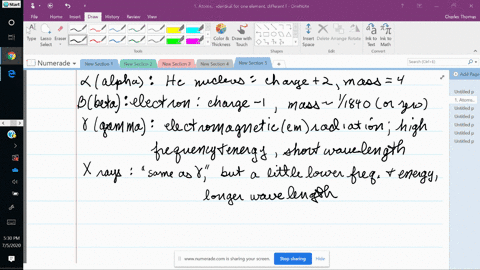 1. Atoms: identical for one element, different f - OneNote
Charles Thomas
File Home Insert Draw History Review View Help
Type Lasso Select Eraser
Color & Thickness
Draw with Touch
Shapes
Insert Space
Ink to Text
Ink to Math
Numerade
New Section 1 New Section 2 New Section 3 New Section 4 New Section 5
Add Page
Untitled p
1. Atoms:
Untitled p
Untitled p
Untitled p
Untitled p
α (alpha): He nucleus: charge +2, mass = 4
β (beta): electron: charge -1, mass ~ 1/1840 (or zero)
γ (gamma): electromagnetic (em) radiation; high
frequency + energy, short wavelength
X rays: "same as γ," but a little lower freq. + energy,
longer wavelength
Start
5:30 PM
7/5/2020
www.numerade.com is sharing your screen.
Stop sharing
Hide